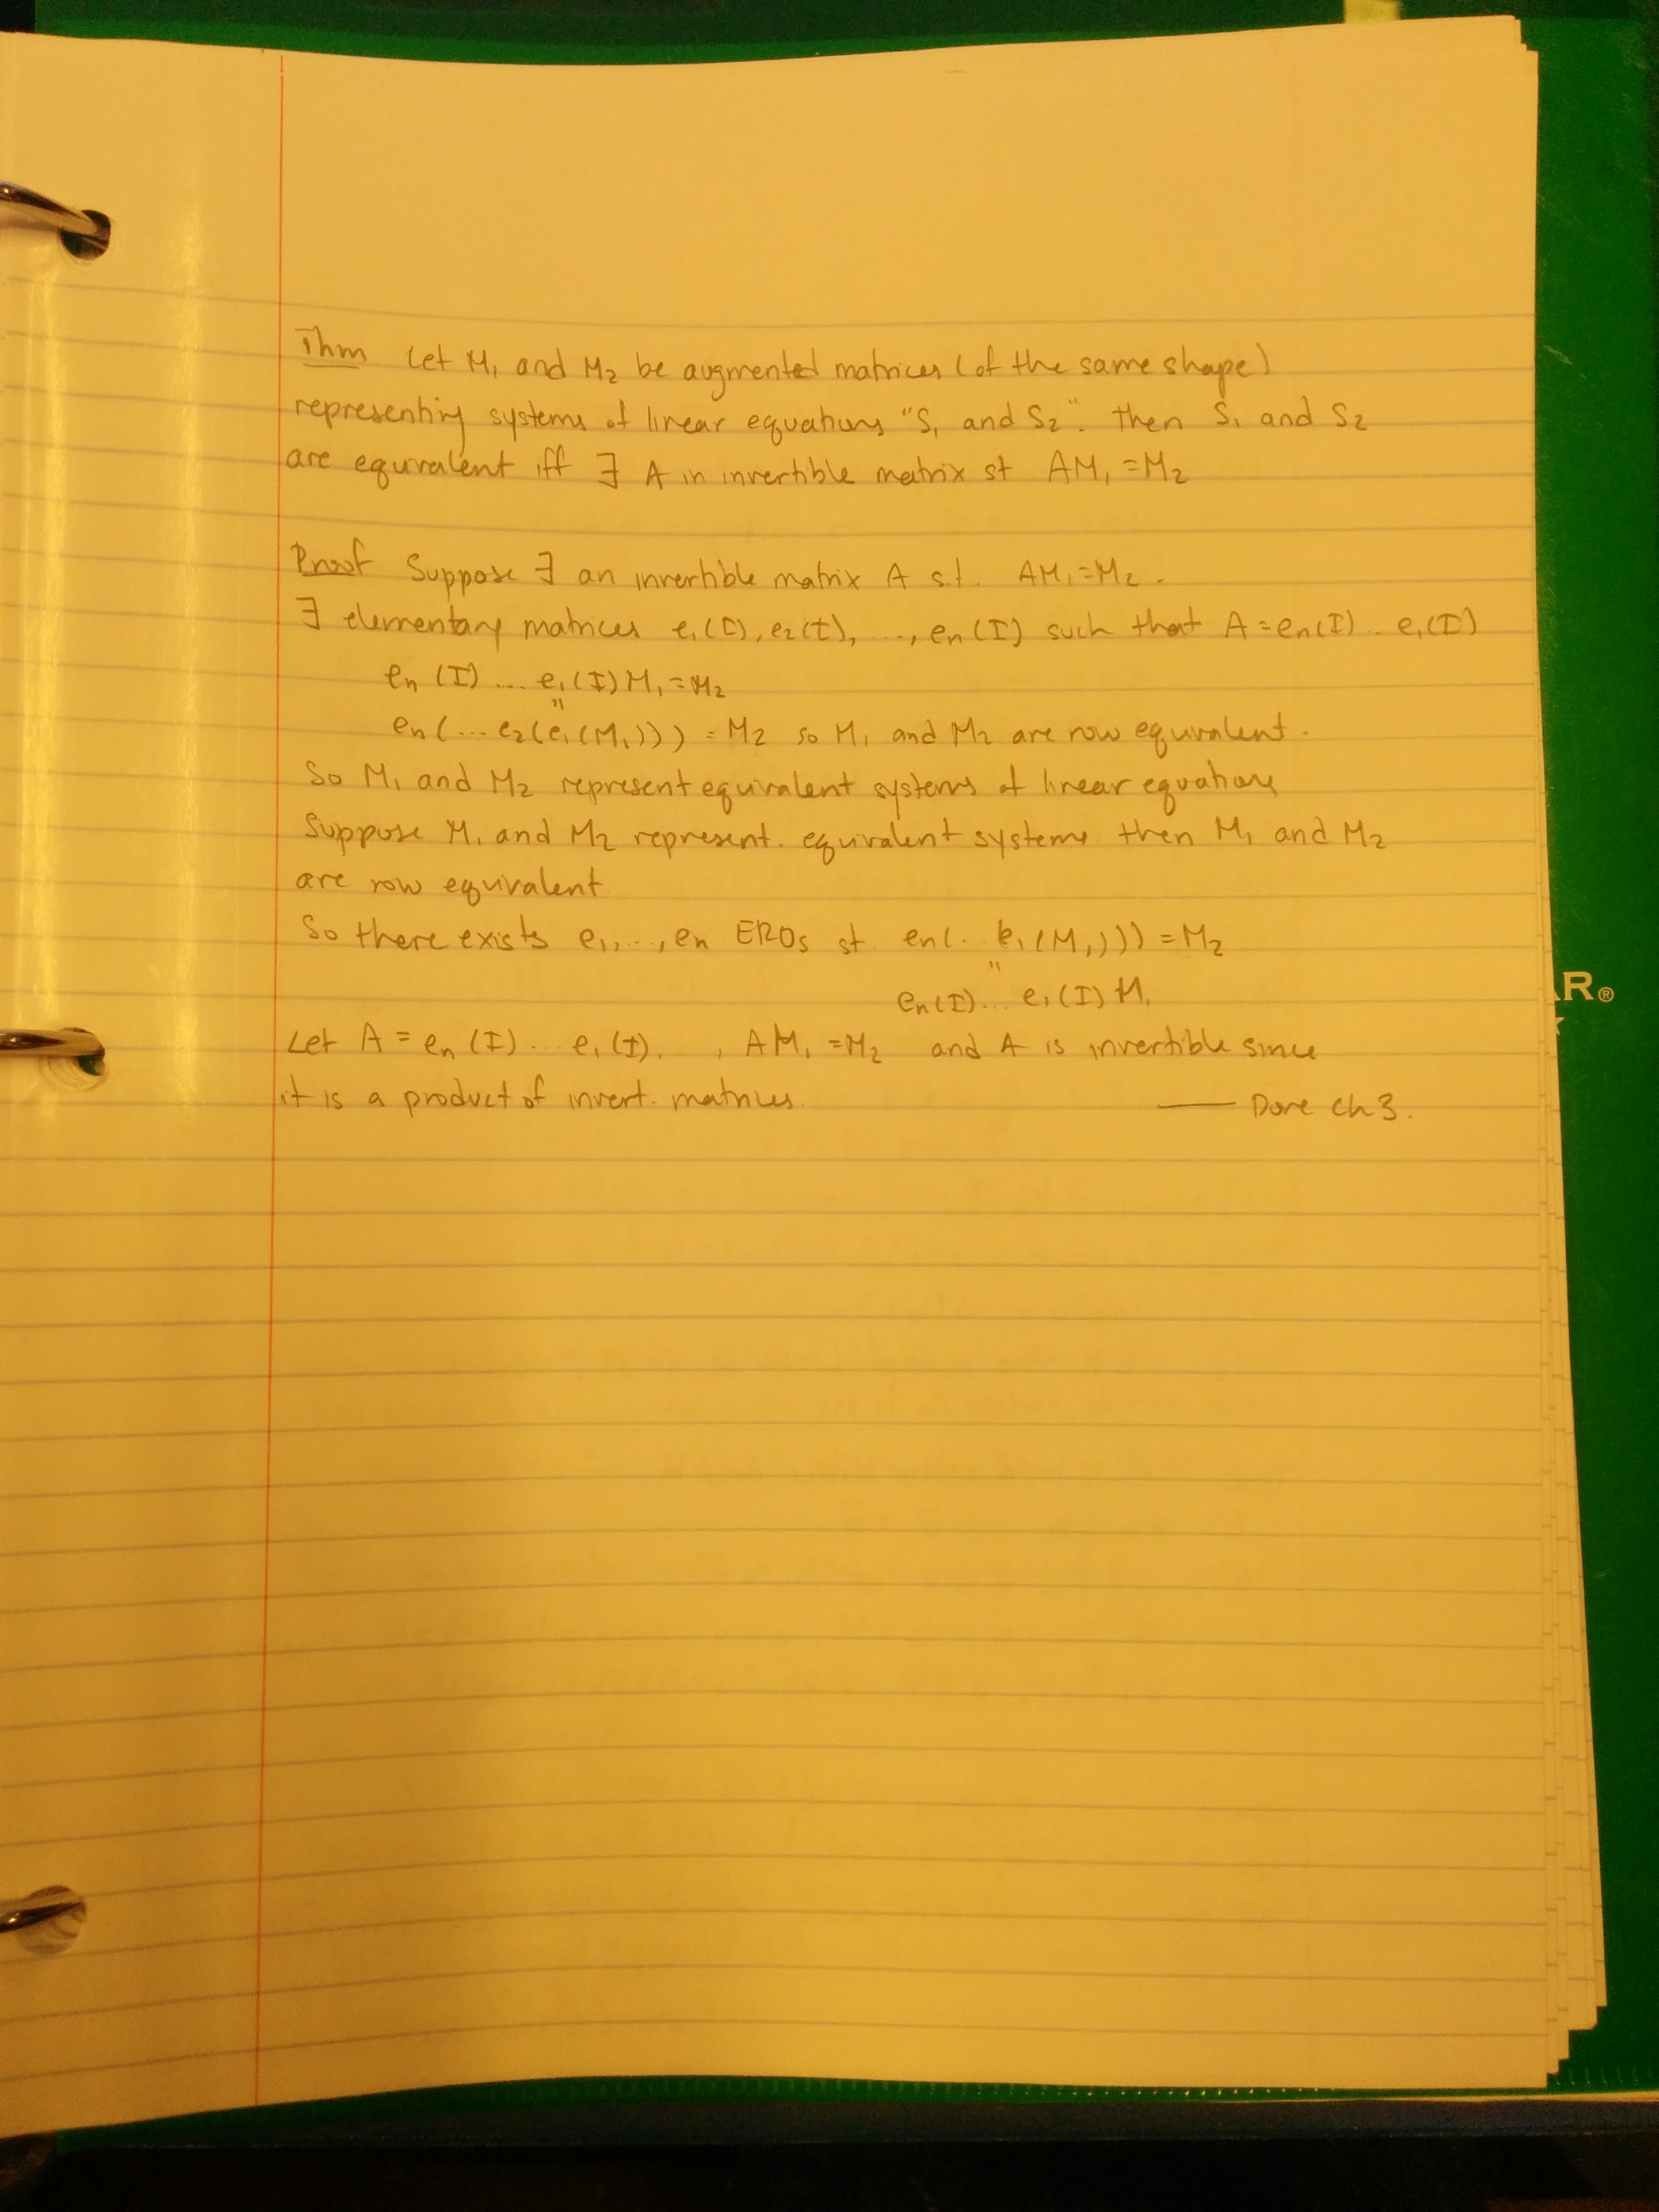 Thm Let M₁ and M₂ be augmented matrices (of the same shape)
representing systems of linear equations "S₁ and S₂". Then S₁ and S₂
are equivalent iff ∃ A in invertible matrix st AM₁ = M₂
Proof Suppose ∃ an invertible matrix A s.t. AM₁ = M₂.
∃ elementary matrices e₁(I), e₂(I), ..., en(I) such that A = en(I) .. e₁(I)
en (I) .... e₁(I) M₁ = M₂
"
en(... e₂(e₁(M₁))) = M₂ so M₁ and M₂ are row equivalent.
So M₁ and M₂ represent equivalent systems of linear equations
Suppose M₁ and M₂ represent. equivalent systems then M₁ and M₂
are row equivalent
So there exists e₁, ..., en EROs st en(.. (e₁(M₁))) = M₂
"
en(I)... e₁(I) M₁
Let A = en (I) ... e₁(I). , AM₁ = M₂ and A is invertible since
it is a product of invert. matrices. —— Done Ch 3.
R®